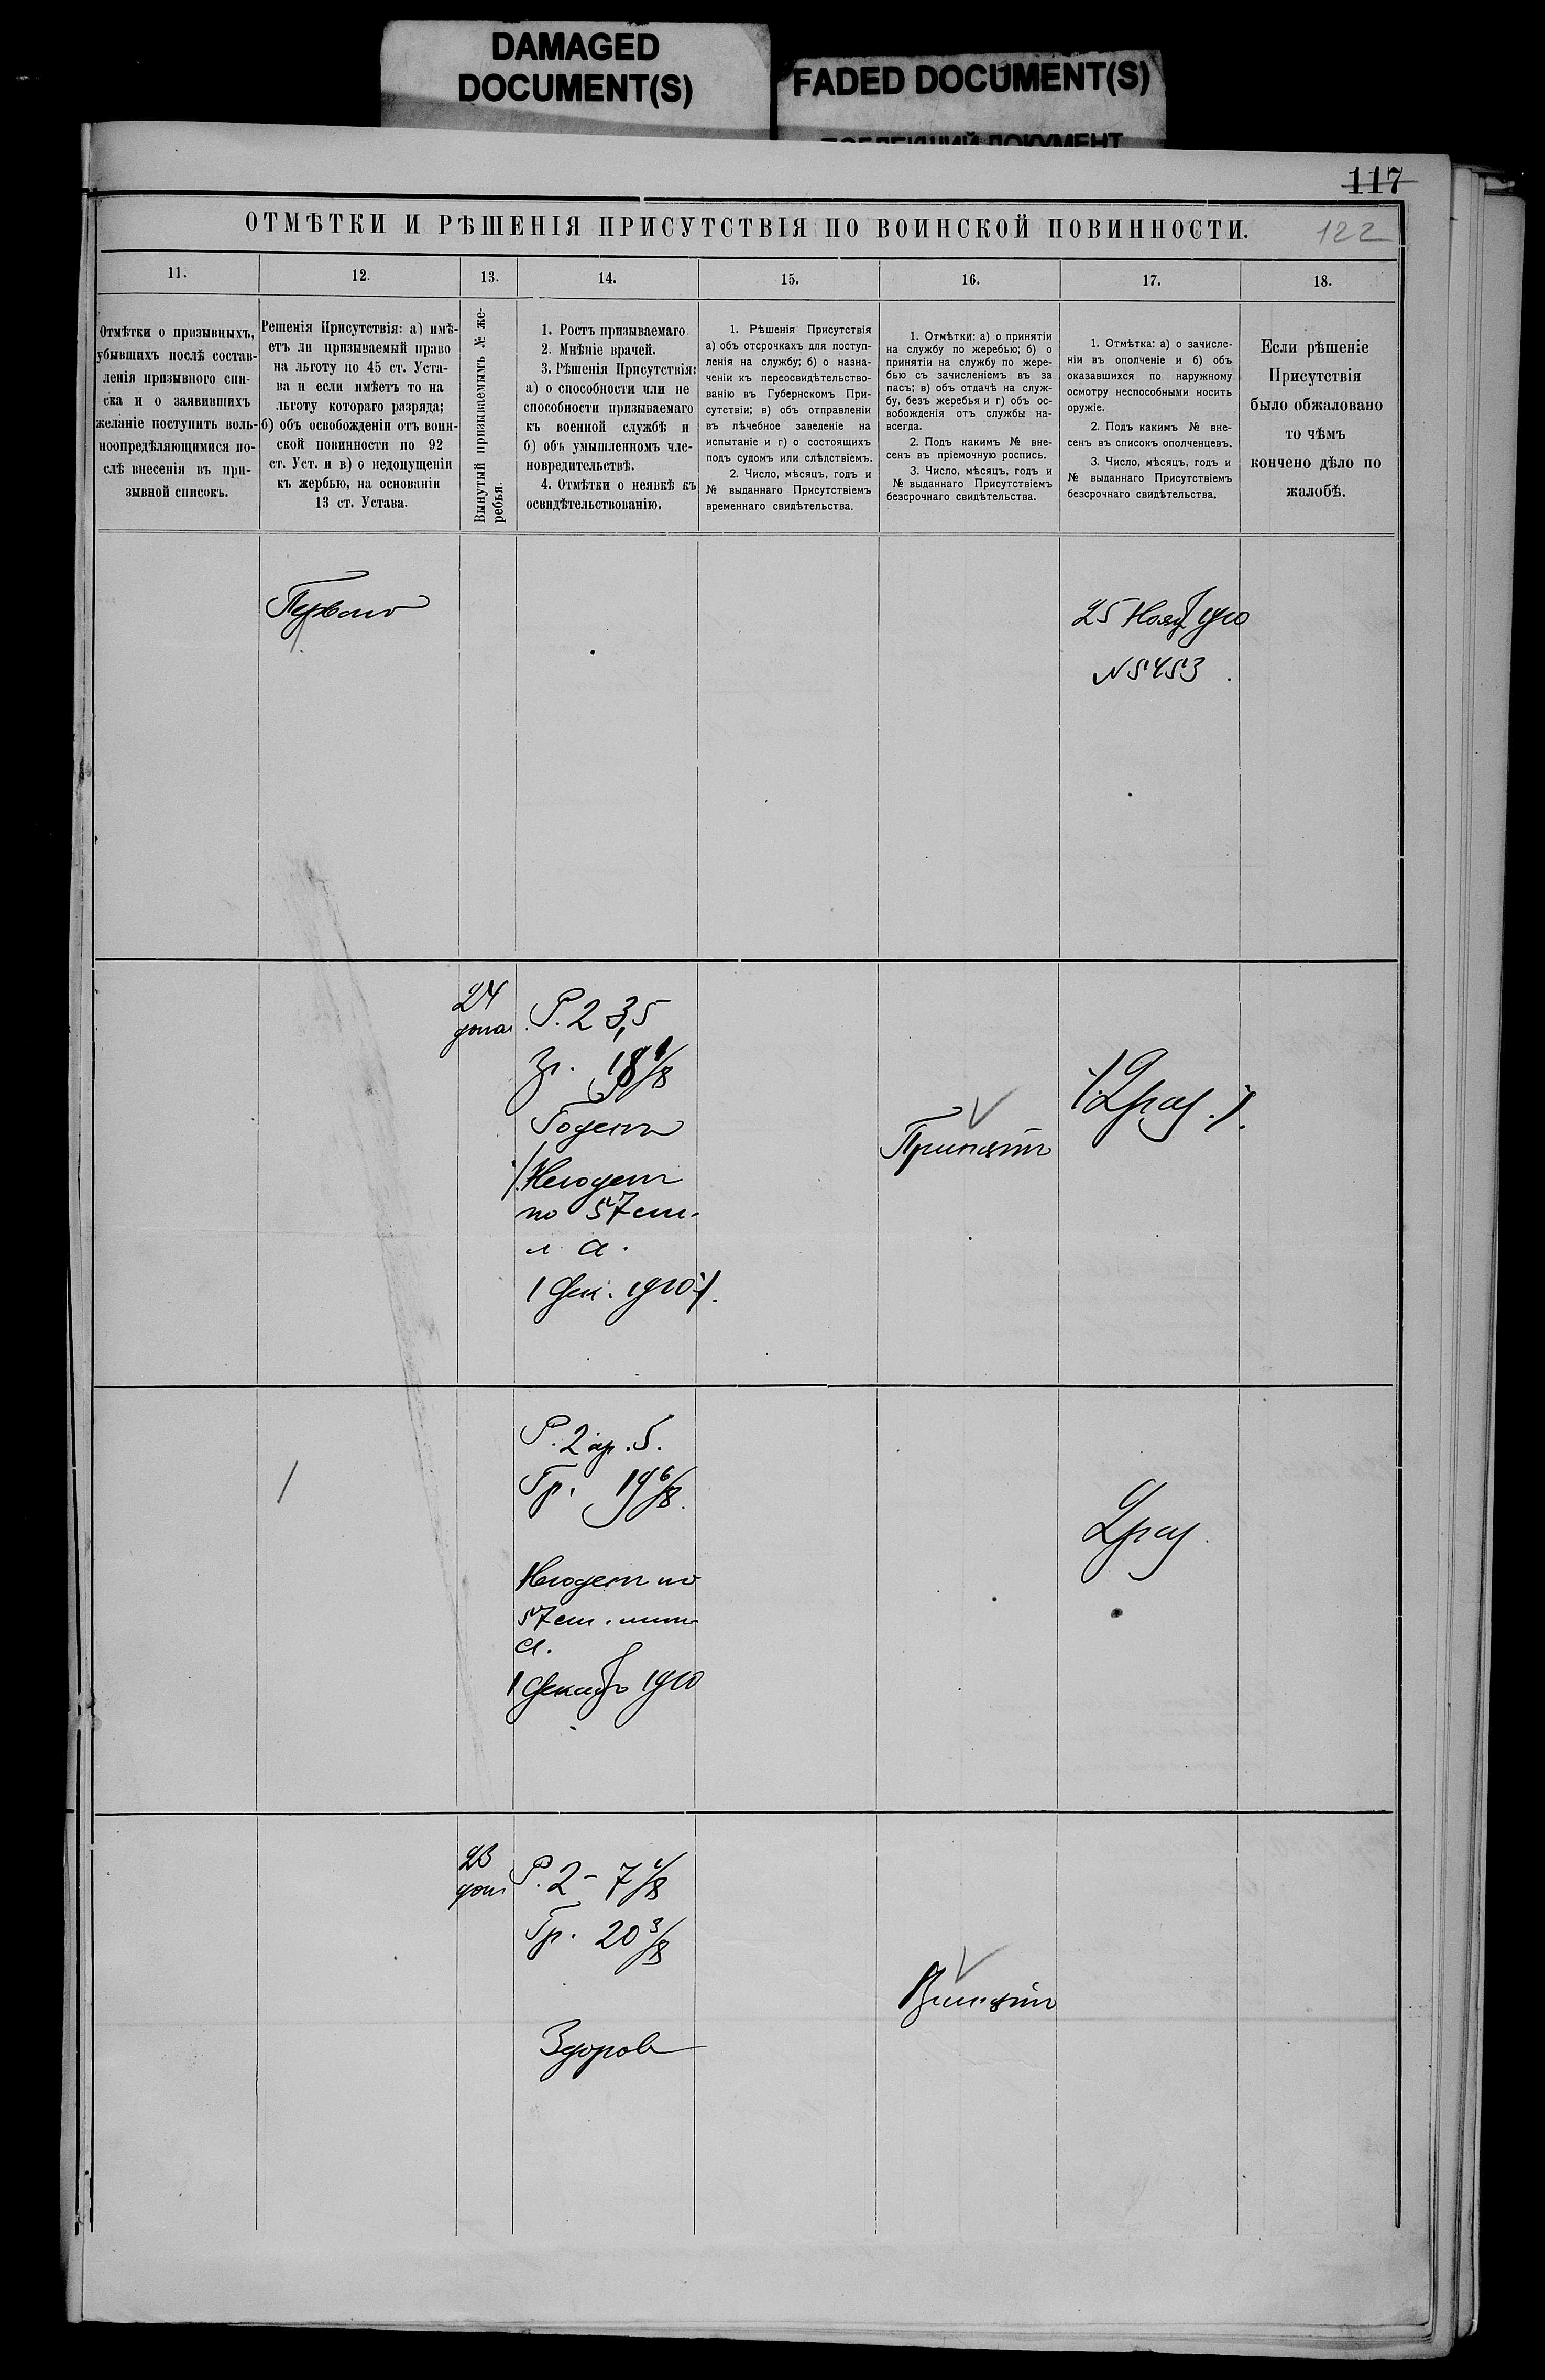 DAMAGED
DOCUMENT(S)
FADED DOCUMENT(S)
117
ОТМѢТКИ И РѢШЕНІЯ ПРИСУТСТВІЯ ПО ВОИНСКОЙ ПОВИННОСТИ.
122
11.
12.
13.
14.
15.
16.
17.
18.
Отмѣтки о призывныхъ,
убывшихъ послѣ состав-
ленія призывного спи-
ска и о заявившихъ
желаніе поступить воль-
ноопредѣляющимися по-
слѣ внесенія въ при-
зывной списокъ.
Решенія Присутствія: а) имѣ-
етъ ли призываемый право
на льготу по 45 ст. Уста-
ва и если имѣетъ то на
льготу котораго разряда;
б) объ освобожденіи отъ воин-
ской повинности по 92
ст. Уст. и в) о недопущеніи
къ жербью, на основаніи
13 ст. Устава.
Вынутый призываемымъ № же-
ребья.
1. Ростъ призываемаго
2. Мнѣніе врачей.
3. Рѣшенія Присутствія:
а) о способности или не
способности призываемаго
къ военной службѣ и
б) объ умышленномъ чле-
новредительствѣ.
4. Отмѣтки о неявкѣ къ
освидѣтельствованію.
1. Рѣшенія Присутствія
а) объ отсрочкахъ для поступ-
ленія на службу; б) о назна-
ченіи къ переосвидѣтельство-
ванію въ Губернскомъ При-
сутствіи; в) объ отправленіи
въ лѣчебное заведеніе на
испытаніе и г) о состоящихъ
подъ судомъ или слѣдствіемъ.
2. Число, мѣсяцъ, годъ и
№ выданнаго Присутствіемъ
временнаго свидѣтельства.
1. Отмѣтки: а) о принятіи
на службу по жеребью; б) о
принятіи на службу по жере-
бью съ зачисленіемъ въ за
пасъ; в) объ отдачѣ на служ-
бу, безъ жеребья и г) объ ос-
вобожденія отъ службы на-
всегда.
2. Подъ какимъ № вне-
сенъ въ пріемочную роспись.
3. Число, мѣсяцъ, годъ и
№ выданнаго Присутствіемъ
безсрочнаго свидѣтельства.
1. Отмѣтка: а) о зачисле-
ніи въ ополченіе и б) объ
оказавшихся по наружному
осмотру неспособными носить
оружіе.
2. Подъ какимъ № вне-
сенъ въ списокъ ополченцевъ.
3. Число, мѣсяцъ, годъ и
№ выданнаго Присутствіемъ
безсрочнаго свидѣтельства.
Если рѣшеніе
Присутствія
было обжаловано
то чѣмъ
кончено дѣло по
жалобѣ.
25 Нояб 1910
N 5453
24
Р. 2 3,5
Годенъ
Негоденъ
по 57 ст.
л. а.
1 Дек. 1910
Принятъ
2 раз.
Р. 2 ар. 5.
Гр. 19 6/8.
Негоденъ по
57 ст. лит.
а.
1 Декабр 1910
2 раз.
23
Р. 2 - 7 1/8
Гр. 20 3/8
Здоровъ
Принятъ